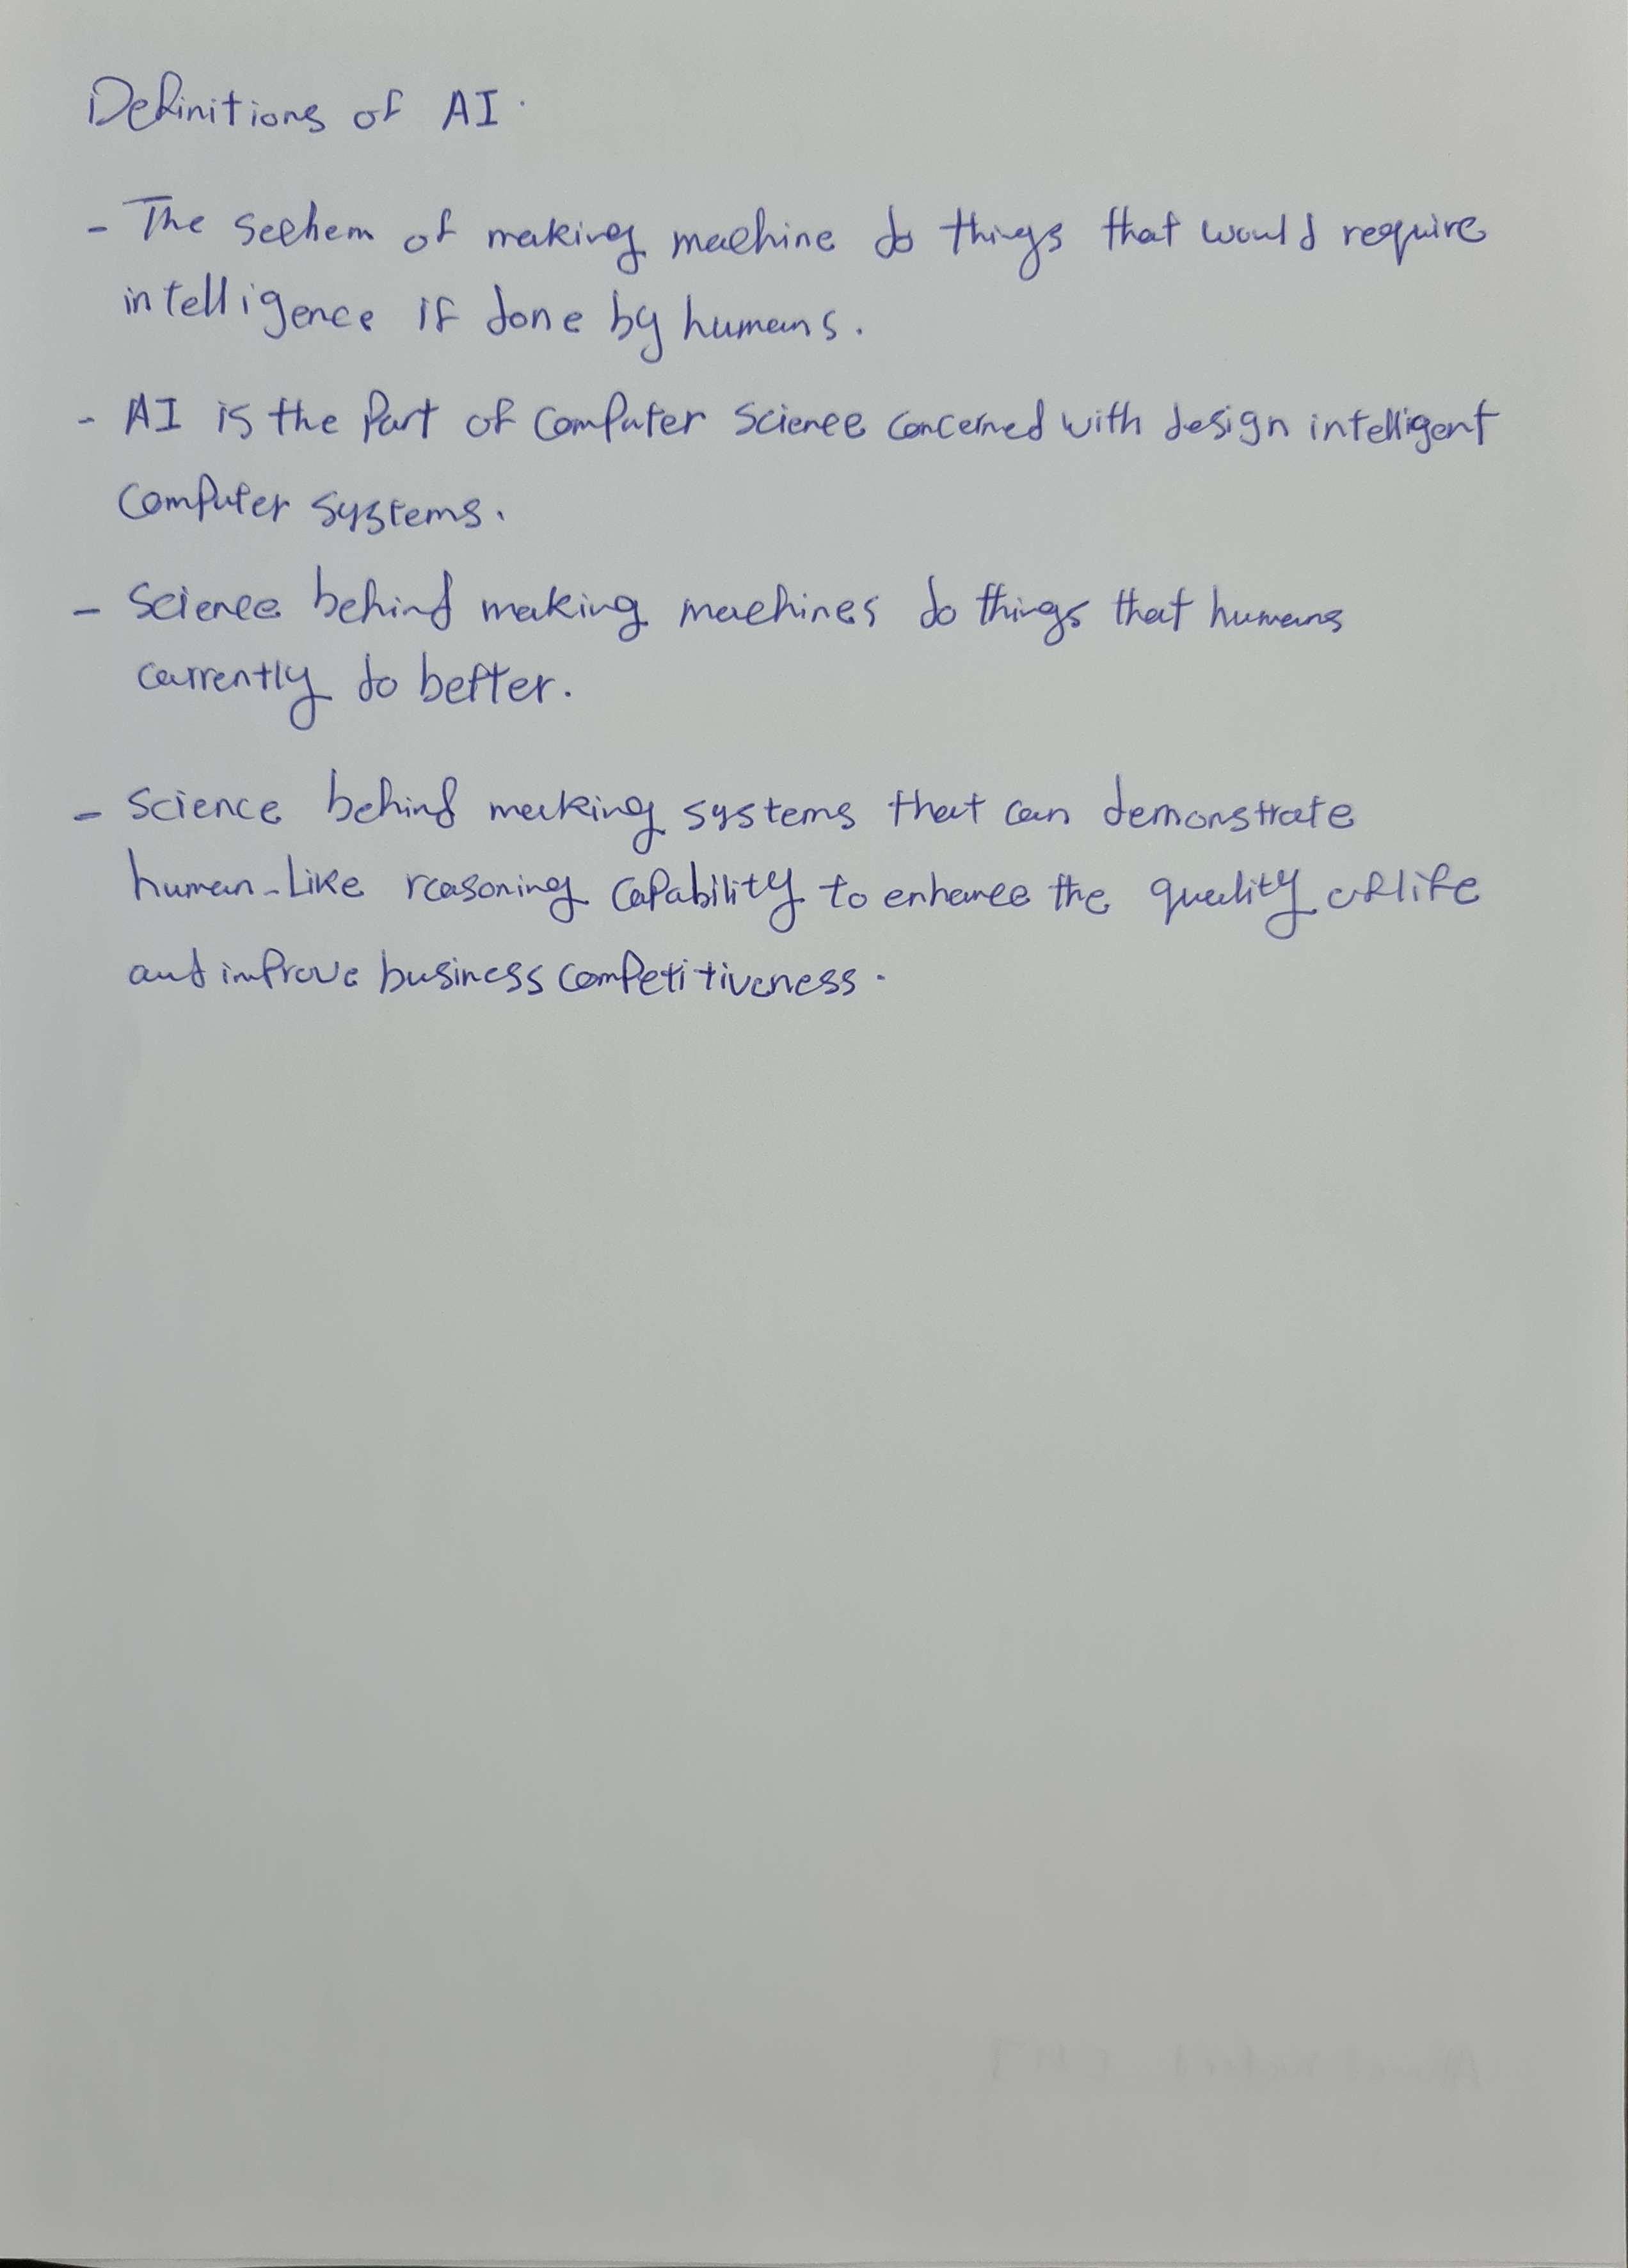 Definitions of AI.
- The scehem of making machine do things that would require
intelligence if done by humans.
- AI is the Part of Computer Science concerned with design intelligent
Computer systems.
- Science behind making machines do things that humans
currently do better.
- Science behind making systems that can demonstrate
human-like reasoning capability to enhance the quality of life
and improve business competitiveness.